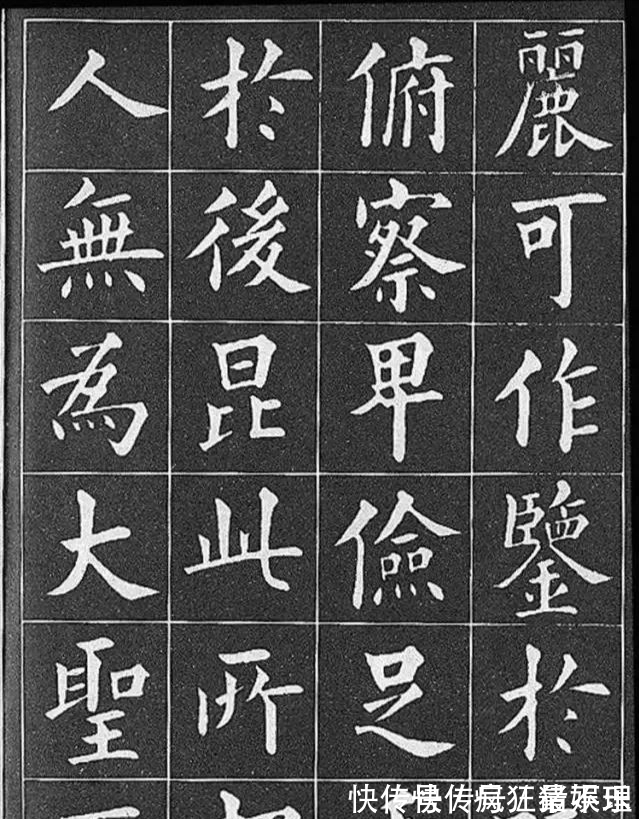 麗可作鑒於
俯察卑儉足
於後昆此所
人無為大聖
快传